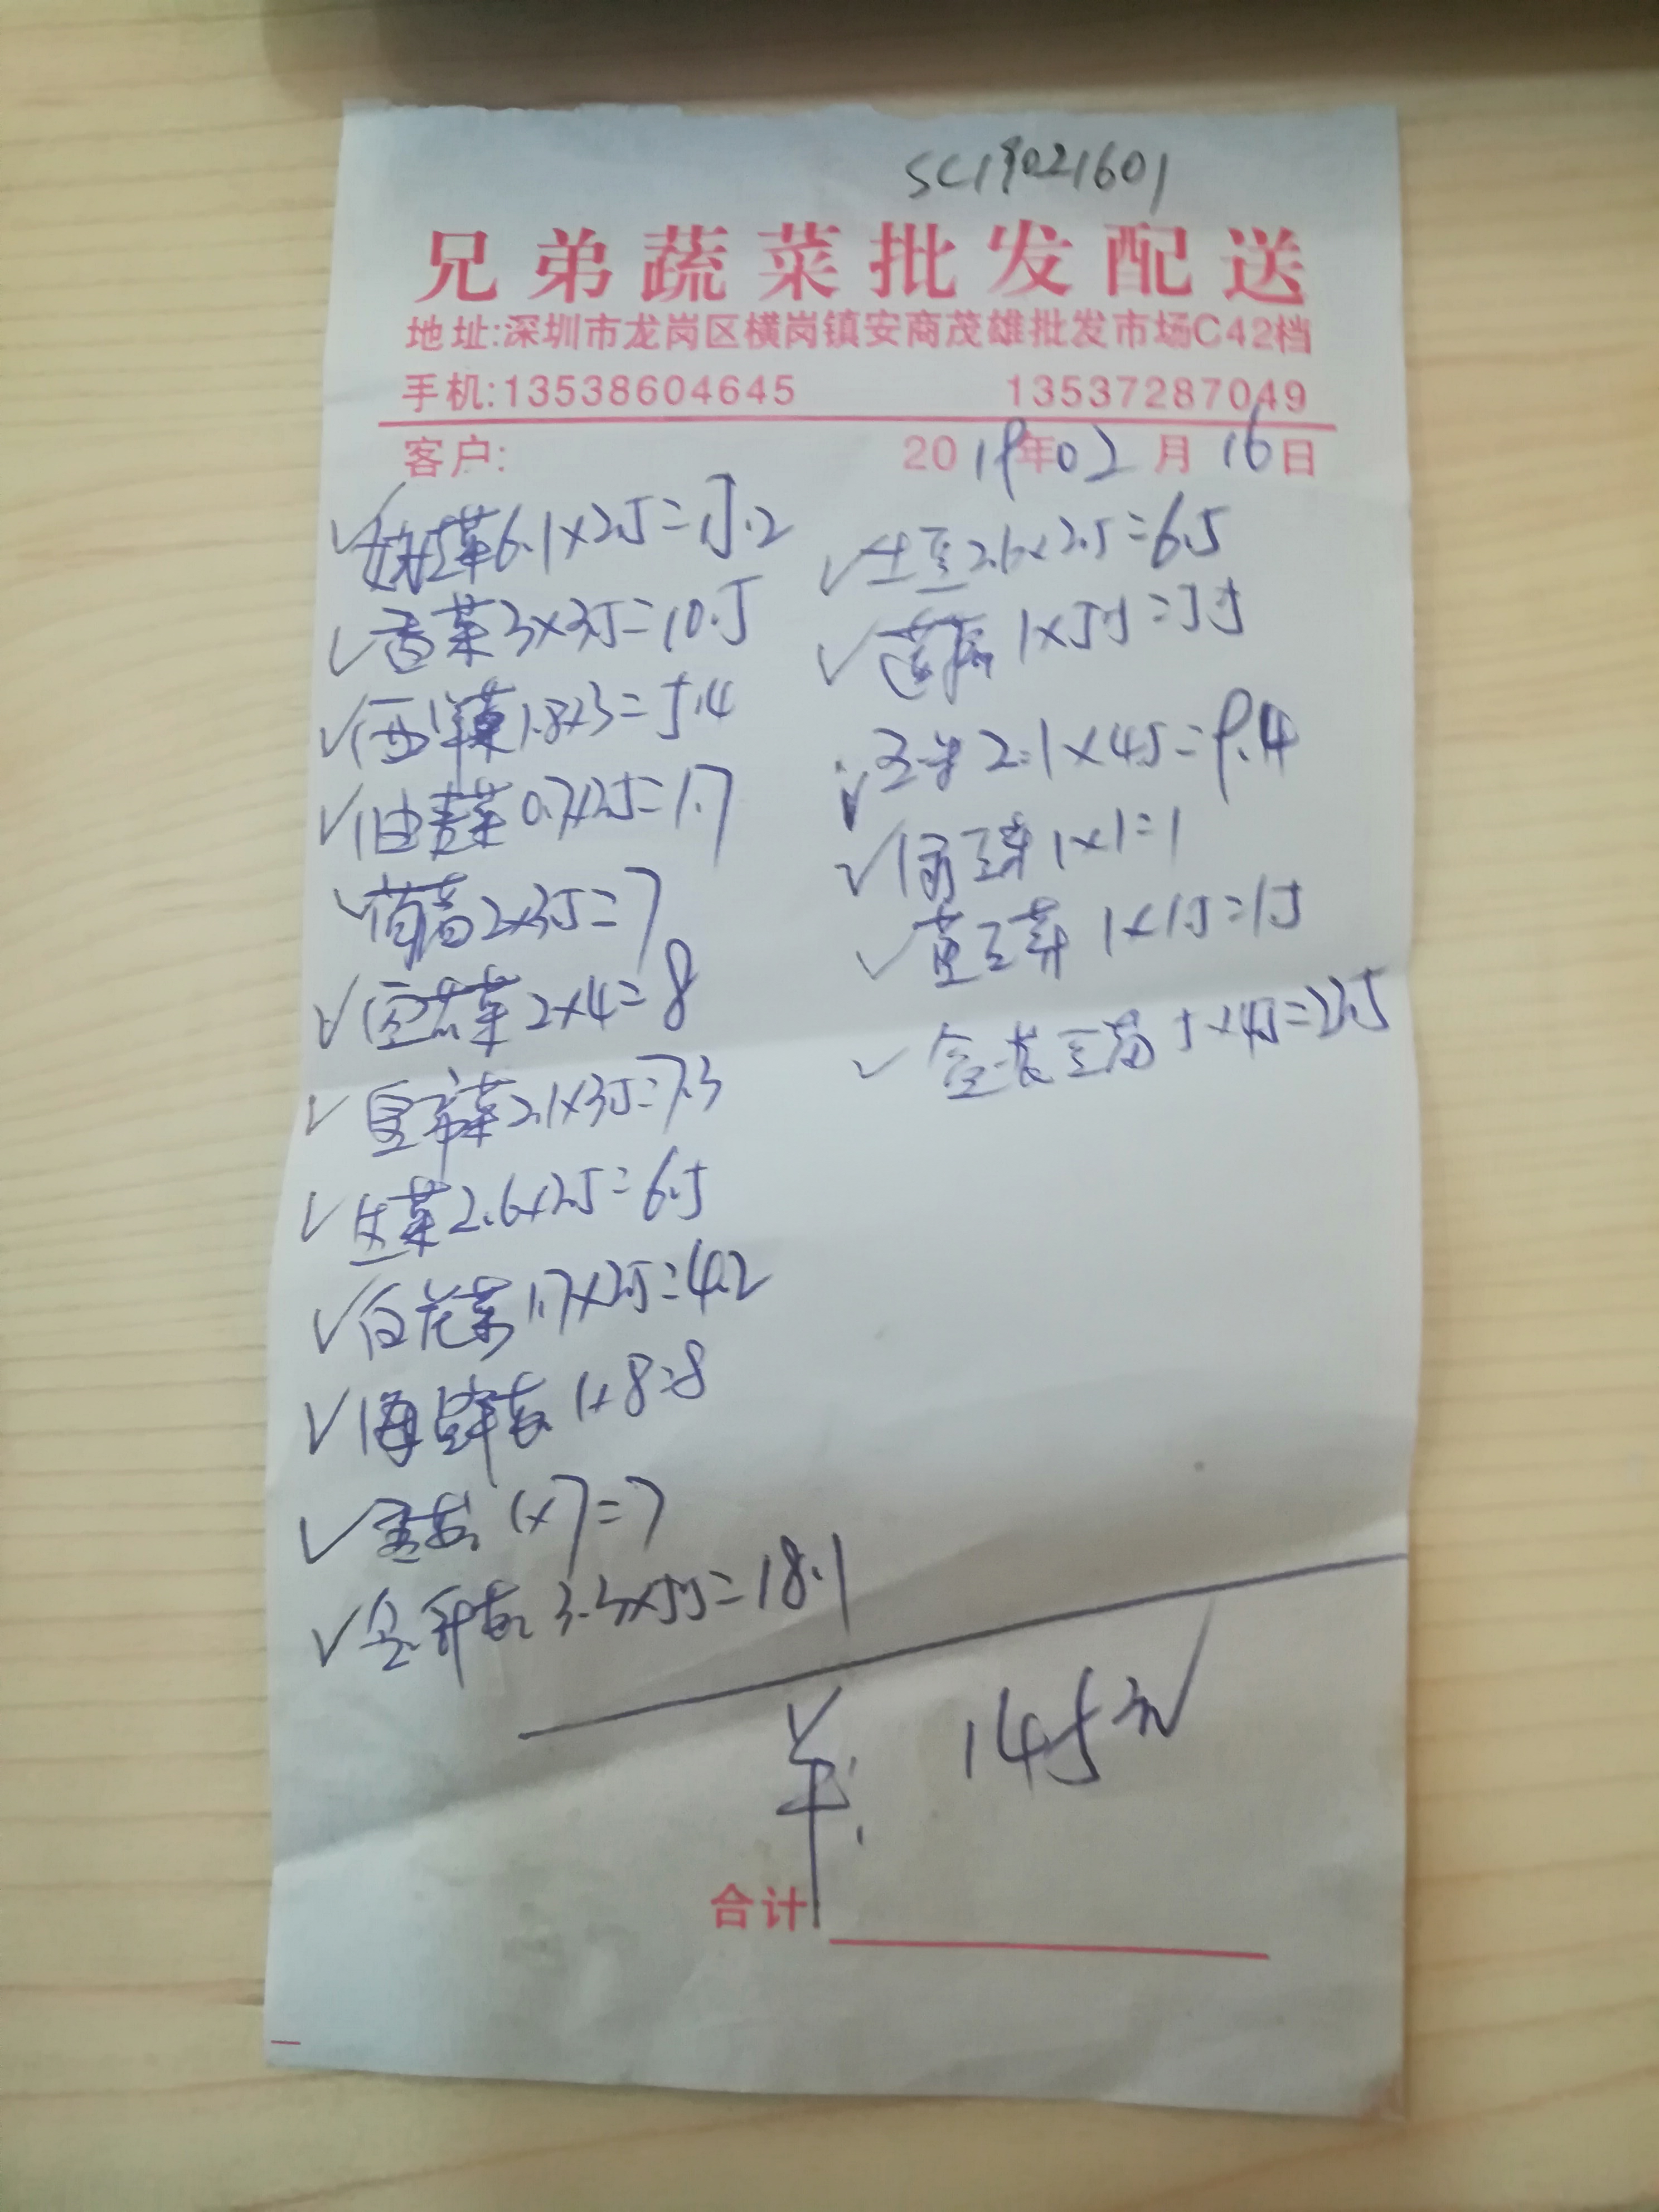 SC19021601
兄弟蔬菜批发配送
地址:深圳市龙岗区横岗镇安商茂雄批发市场C42档
手机:13538604645 13537287049
客户: 2019年02月16日
6.1×2.5=15.2
香菜3×3.5=10.5
西洋菜1.8×3=5.4
油麦菜0.7×2.5=1.7
茼蒿2×3.5=7
2×4=8
皇帝菜2.1×3.5=7.3
生菜2.6×2.5=6.5
白花菜1.7×2.5=4.2
海鲜菇1×8=8
1×7=7
金针菇3.3×5.5=18.1
土豆2.6×2.5=6.5
1×5.5=5.5
2.1×4.5=9.4
绿豆芽1×1=1
黄豆芽1×1.5=1.5
盒装豆腐5×4.5=22.5
145元
合计